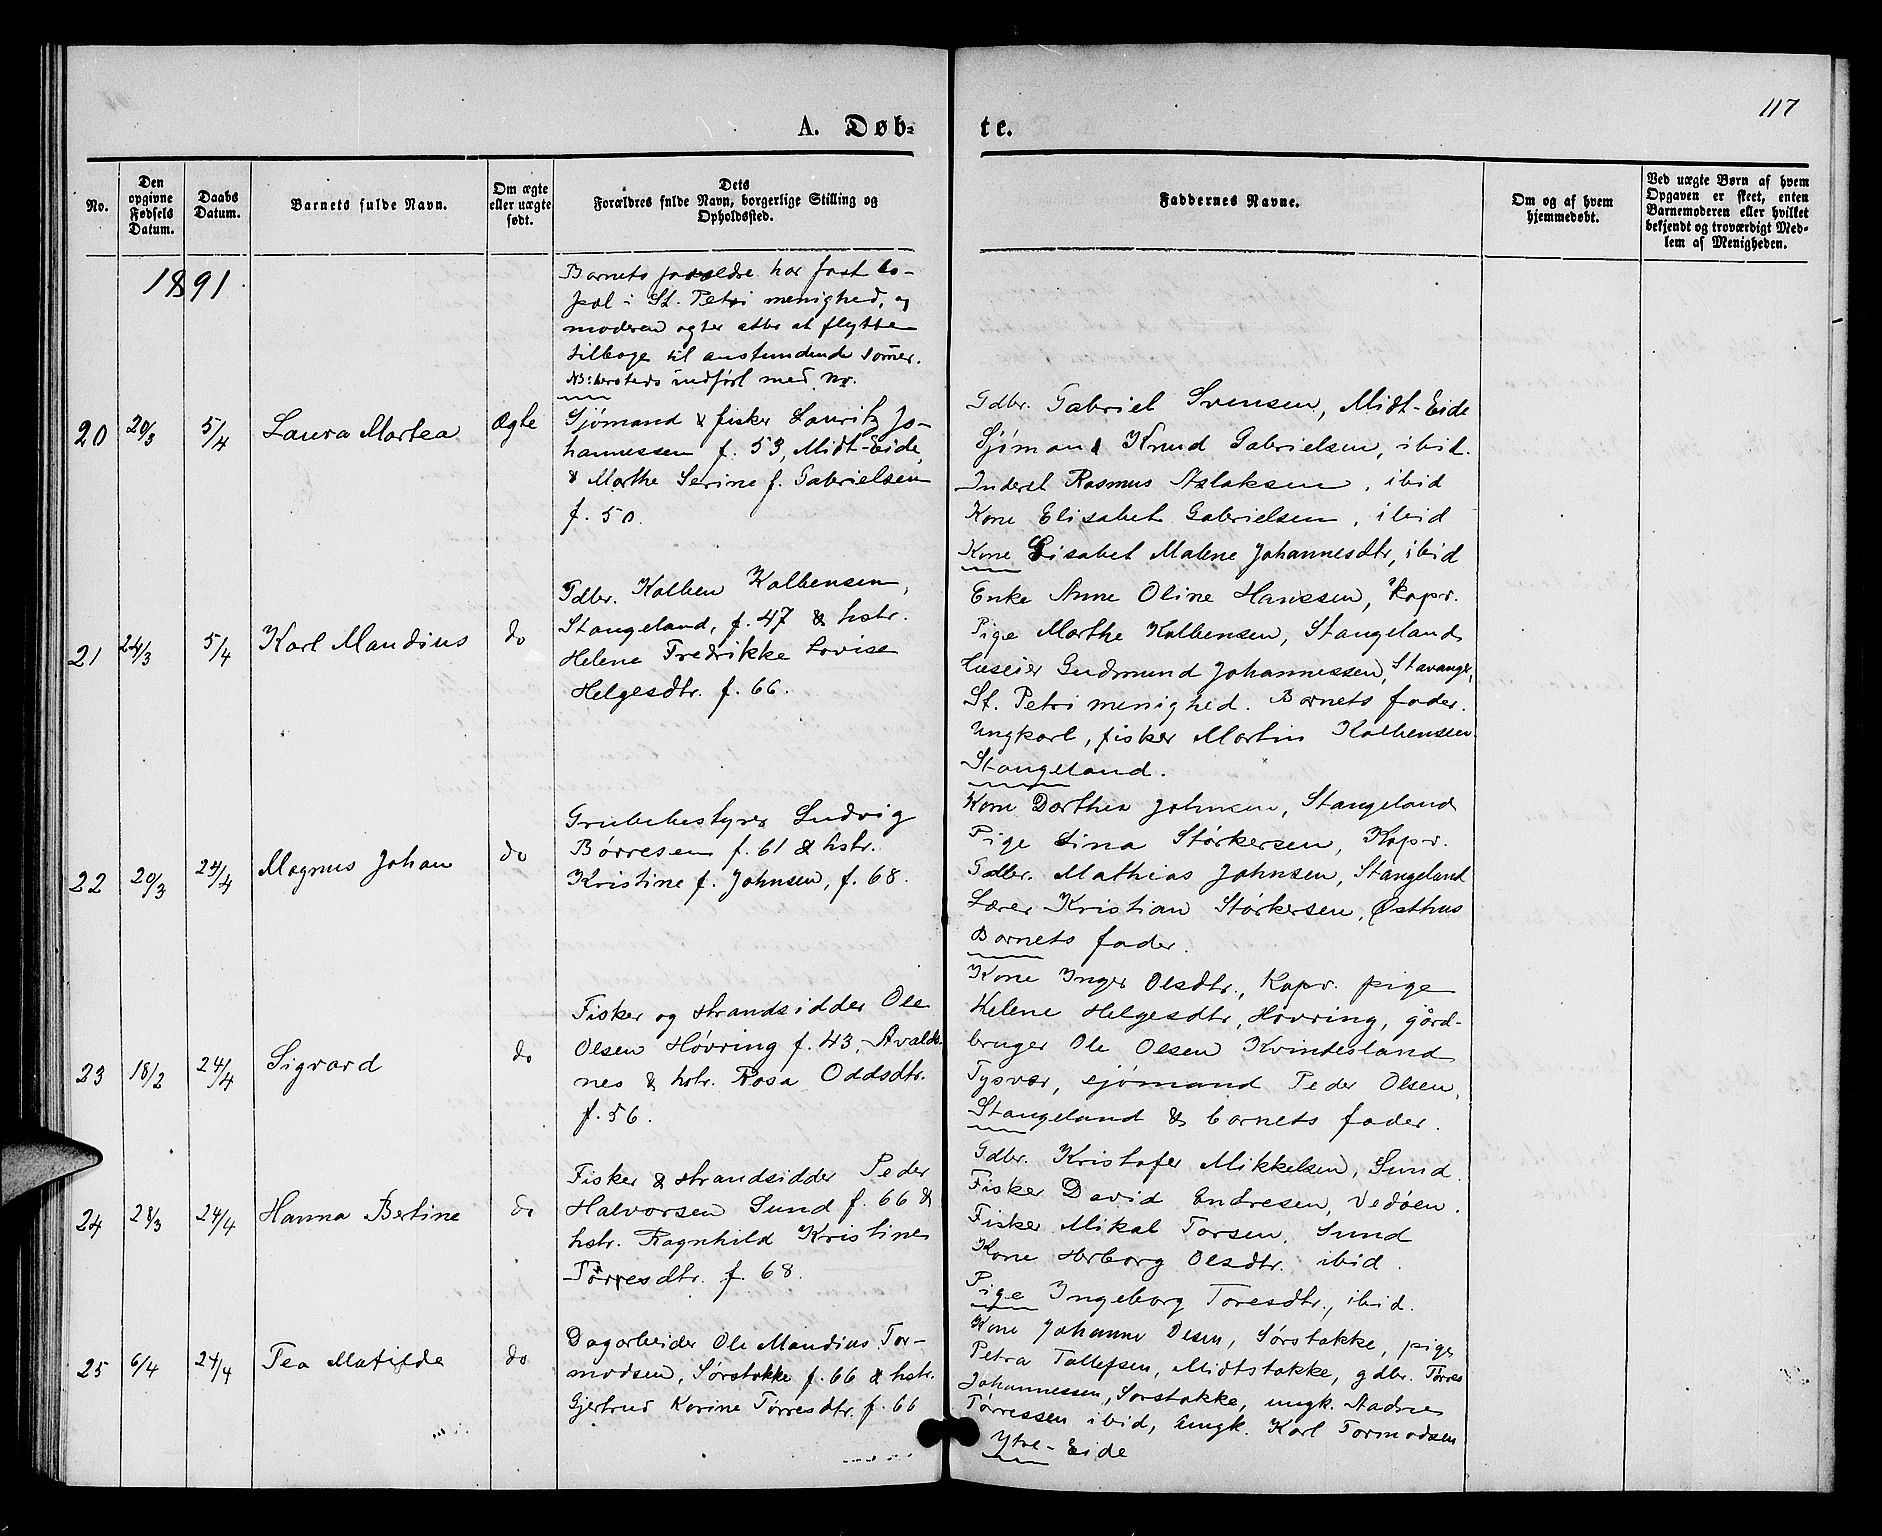 117
A. Døb-
te.
No.
Den
opgivne
Fødsels
Datum.
Daabs
Datum.
Barnets fulde Navn.
Om ægte
eller uægte
født.
Dets
Forældres fulde Navn, borgerlige Stilling og
Opholdssted.
Faddernes Navne.
Om og af hvem
hjemmedøbt.
Ved uægte Børn af hvem
Opgaven er skeet, enten
Barnemoderen eller hvilket
bekjendt og troværdigt Med-
lem af Menigheden.
1891.
Barnets forældre har fast bo-
pæl i St. Petri menighed, og
moderen agter atter at flytte
tilbage til anstundende somer.
NB: hersteds indført med nr.
20
20/3
5/4
Laura Martea
Ægte
Sjømand & fisker Lauritz Jo-
hannessen f. 53, Midt-Eide,
& Marthe Serine f. Gabrielsen
f. 50.
Gdbr. Gabriel Svensen, Midt-Eide
Sjømand Knud Gabrielsen, ibid.
Inderst Rasmus Aslaksen, ibid
Kone Elisabet Gabrielsen, ibid
Kone Lisabet Malene Johannesdtr, ibid
21
24/3
5/4
Karl Mandius
do
Gdbr. Kolben Kolbensen,
Stangeland, f. 47 & hstr.
Helene Fredrikke Lovise
Helgesdtr. f. 66.
Enke Anne Oline Hanssen, Kopv.
Pige Marthe Kolbensen, Stangeland
Huseier Gudmund Johannessen, Stavanger,
St. Petri menighed. Barnets fader.
Ungkarl, fisker Martin Kolbensen
Stangeland.
22
20/3
24/4
Magnus Johan
do
Grubebestyrer Ludvig
Børresen f. 61 & hstr.
Kristine f. Johnsen, f. 68.
Kone Dorthea Johnsen, Stangeland
Pige Lina Størkersen, Kopv.
Gdbr. Mathias Johnsen, Stangeland
Lærer Kristian Størkersen, Østhus
Barnets fader.
23
18/2
24/4
Sigvard
do
Fisker og strandsidder Ole
Olsen Høvring f. 43, Avalds-
nes & hstr. Rosa Oddsdtr.
f. 56.
Kone Inger Olsdtr., Kopv. pige
Helene Helgesdtr, Høvring, gård-
bruger Ole Olsen Kvindesland
Tysvær, sjømand Peder Olsen,
Stangeland & barnets fader.
24
28/3
24/4
Hanna Bertine
do
Fisker & strandsidder Peder
Halvorsen Sund f. 66 &
hstr. Ragnhild Kristine
Tørresdtr. f. 68.
Gdbr. Kristofer Mikkelsen, Sund.
Fisker David Endresen, Vedøen.
Fisker Mikal Torsen, Sund
Kone Herborg Olsdtr. ibid.
Pige Ingeborg Toresdtr., ibid.
25
6/4
24/4
Tea Matilde
do
Dagarbeider Ole Mandius Tor-
modsen, Sørstokke f. 66 & hstr.
Gjertrud Karine Tørresdtr. f. 66
Kone Johanne Olsen, Sørstokke, pige
Petra Tollefsen, Midtstokke, gdbr. Tørres
Johannessen, Sørstokke, ungk. Aadne
Tørressen ibid, Ungk. Karl Tormodsen
Ytre-Eide